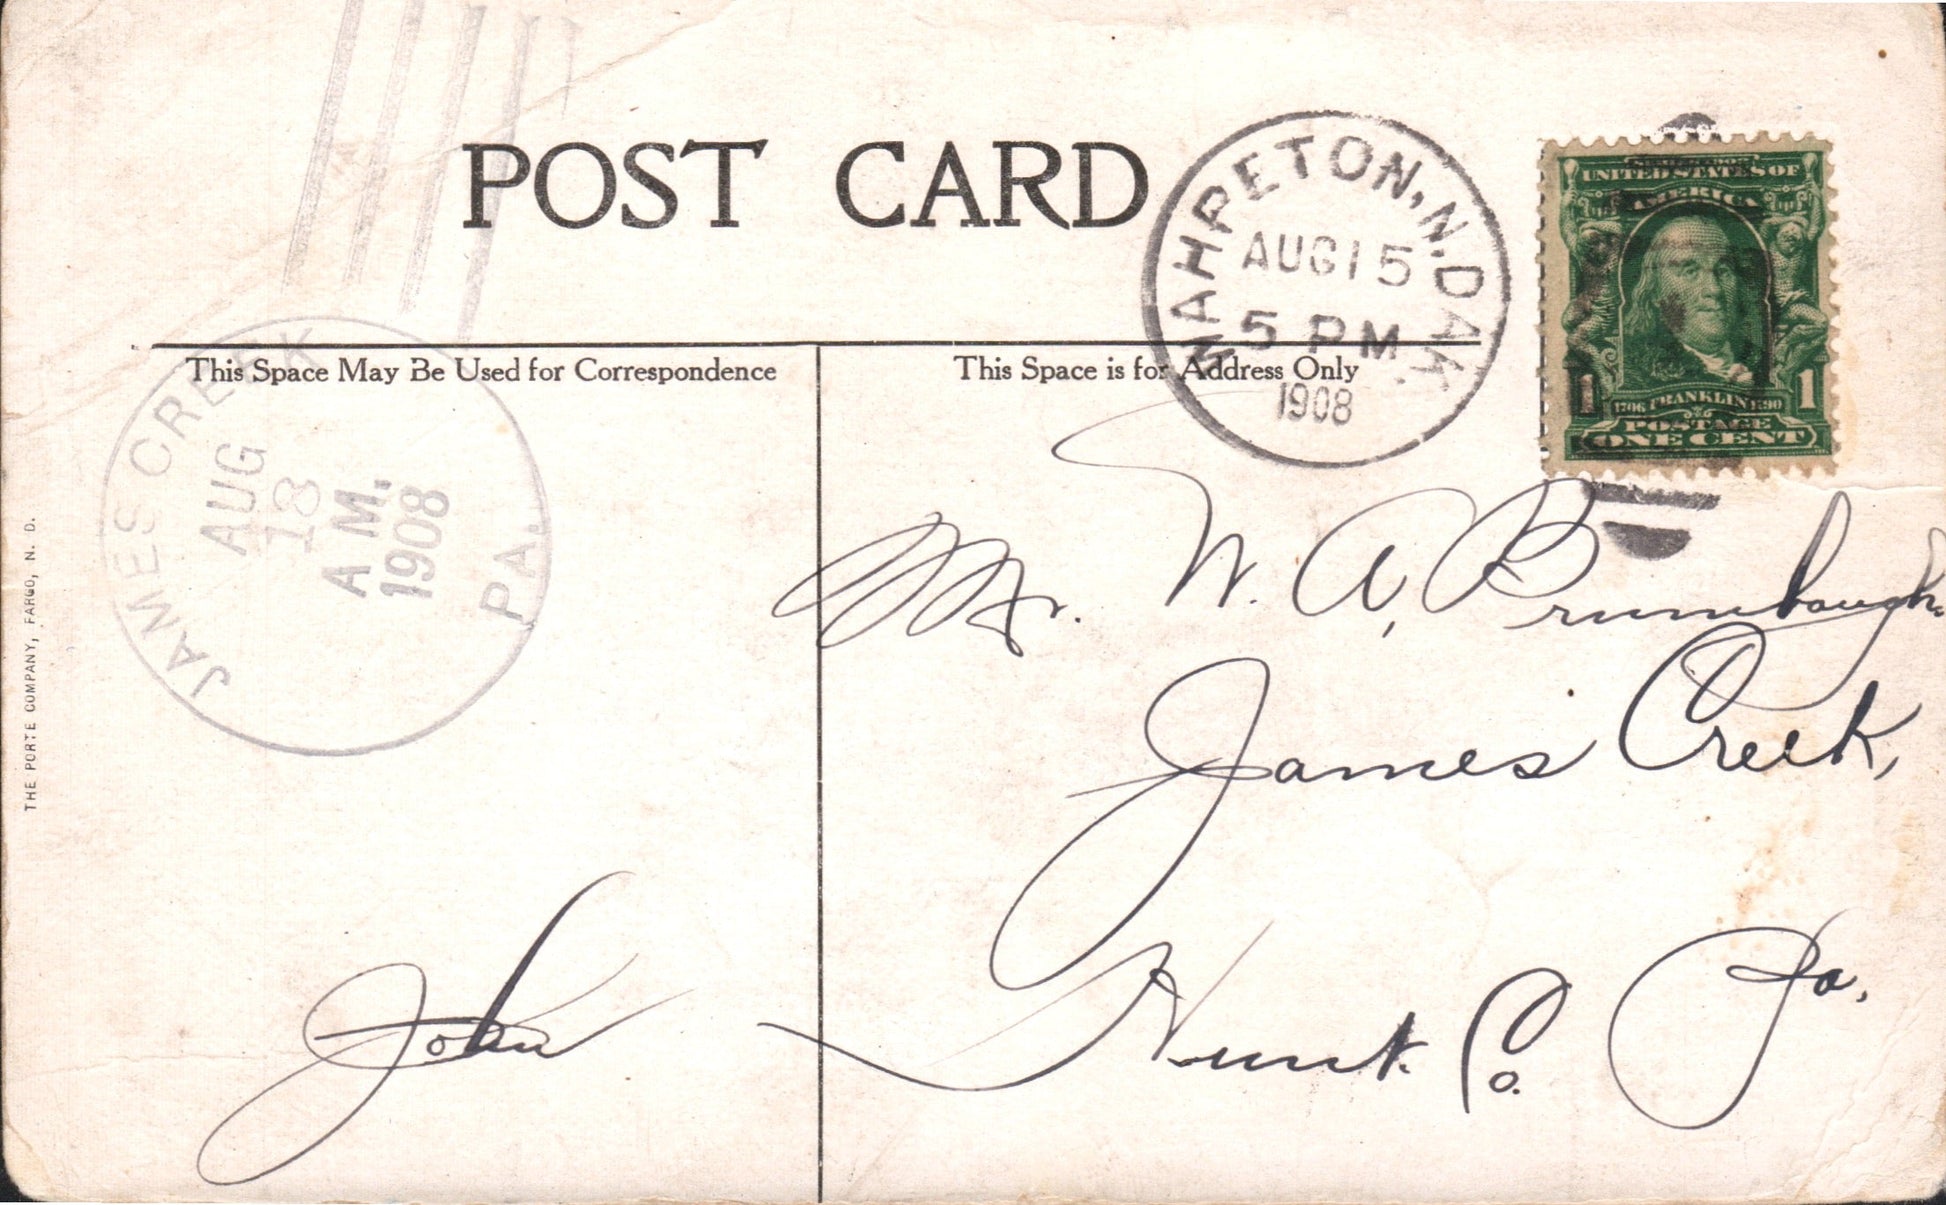 POST CARD
WAHPETON, N. DAK.
AUG 15
5 PM
1908
UNITED STATES OF
AMERICA
1706 FRANKLIN 1790
1 1
POSTAGE
ONE CENT
This Space May Be Used for Correspondence
This Space is for Address Only
JAMES CREEK PA.
AUG
18
A M.
1908
Mr. W. A. Brumbaugh.
James Creek,
Hunt. Co. Pa.
John
THE PORTE COMPANY, FARGO, N. D.